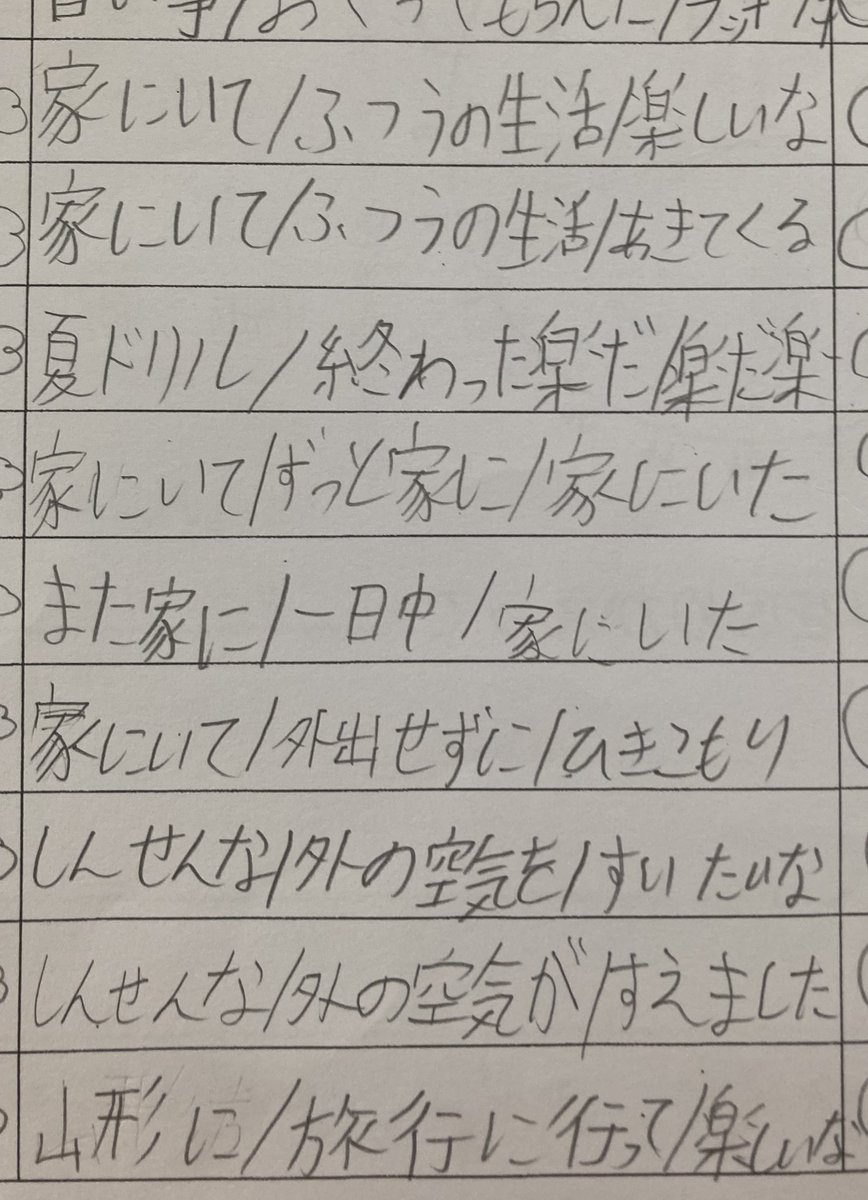 家にいて/ふつうの生活/楽しいな
家にいて/ふつうの生活/あきてくる
夏ドリル/終わった楽だ/楽だ楽
家にいて/ずっと家に/家にいた
また家に/一日中/家にいた
家にいて/外出せずに/ひきこもり
しんせんな/外の空気を/すいたいな
しんせんな/外の空気が/すえました
山形に/旅行に行って/楽しいな